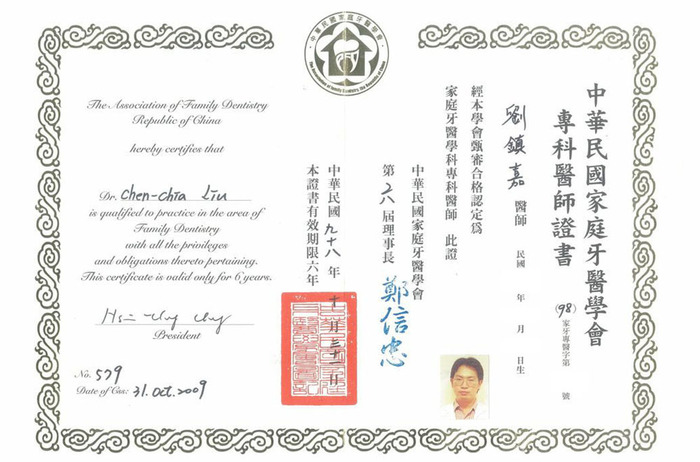 中華民國家庭牙醫學會
中華民國家庭牙醫學會
專科醫師證書
(98) 家牙專醫字第 號
劉鎮嘉 醫師 民國 年 月 日生
經本學會甄審合格認定為
家庭牙醫學科專科醫師 此證
中華民國家庭牙醫學會
第 八屆理事長 鄭信忠
中華民國 九十八 年 十 月 三十一 日
本證書有效期限六年
The Association of Family Dentistry
Republic of China
hereby certifies that
Dr. Chen-chia Liu
is qualified to practice in the area of
Family Dentistry
with all the privileges
and obligations thereto pertaining.
This certificate is valid only for 6 years.
President
No. 579
Date of Css: 31. Oct. 2009